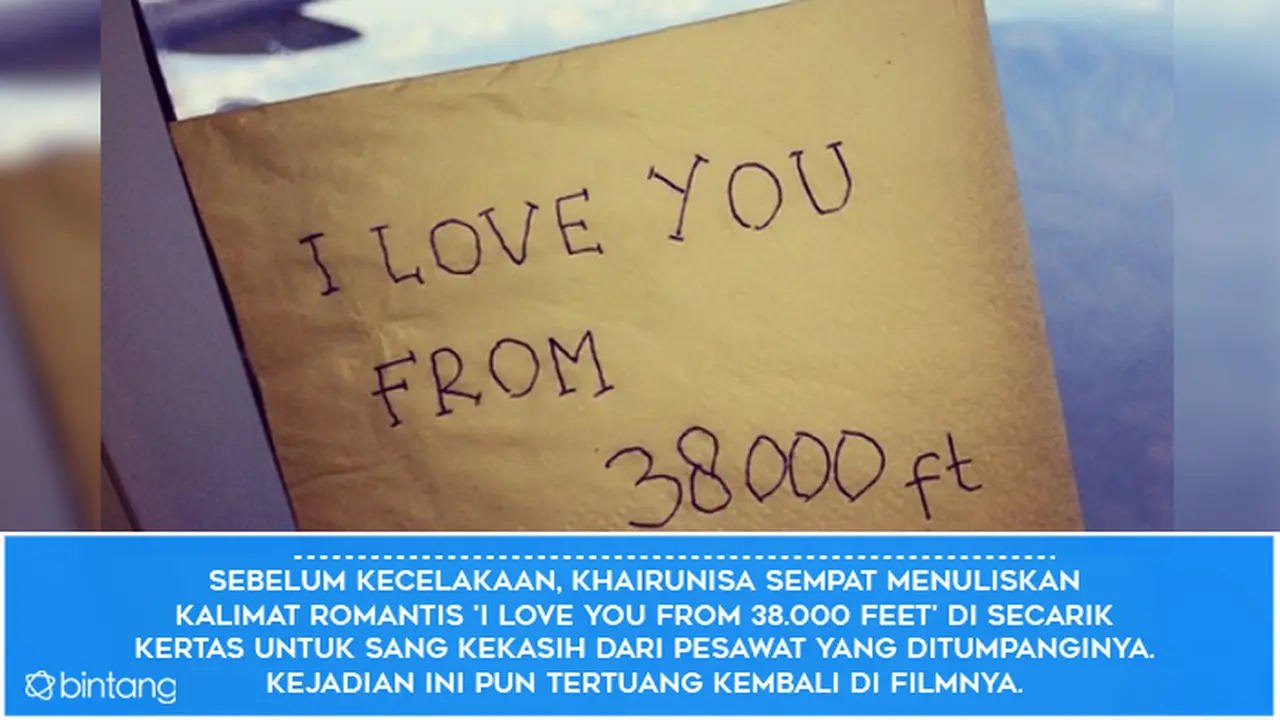 I LOVE YOU
FROM
38000 ft
SEBELUM KECELAKAAN, KHAIRUNISA SEMPAT MENULISKAN
KALIMAT ROMANTIS 'I LOVE YOU FROM 38.000 FEET' DI SECARIK
KERTAS UNTUK SANG KEKASIH DARI PESAWAT YANG DITUMPANGINYA.
KEJADIAN INI PUN TERTUANG KEMBALI DI FILMNYA.
bintang